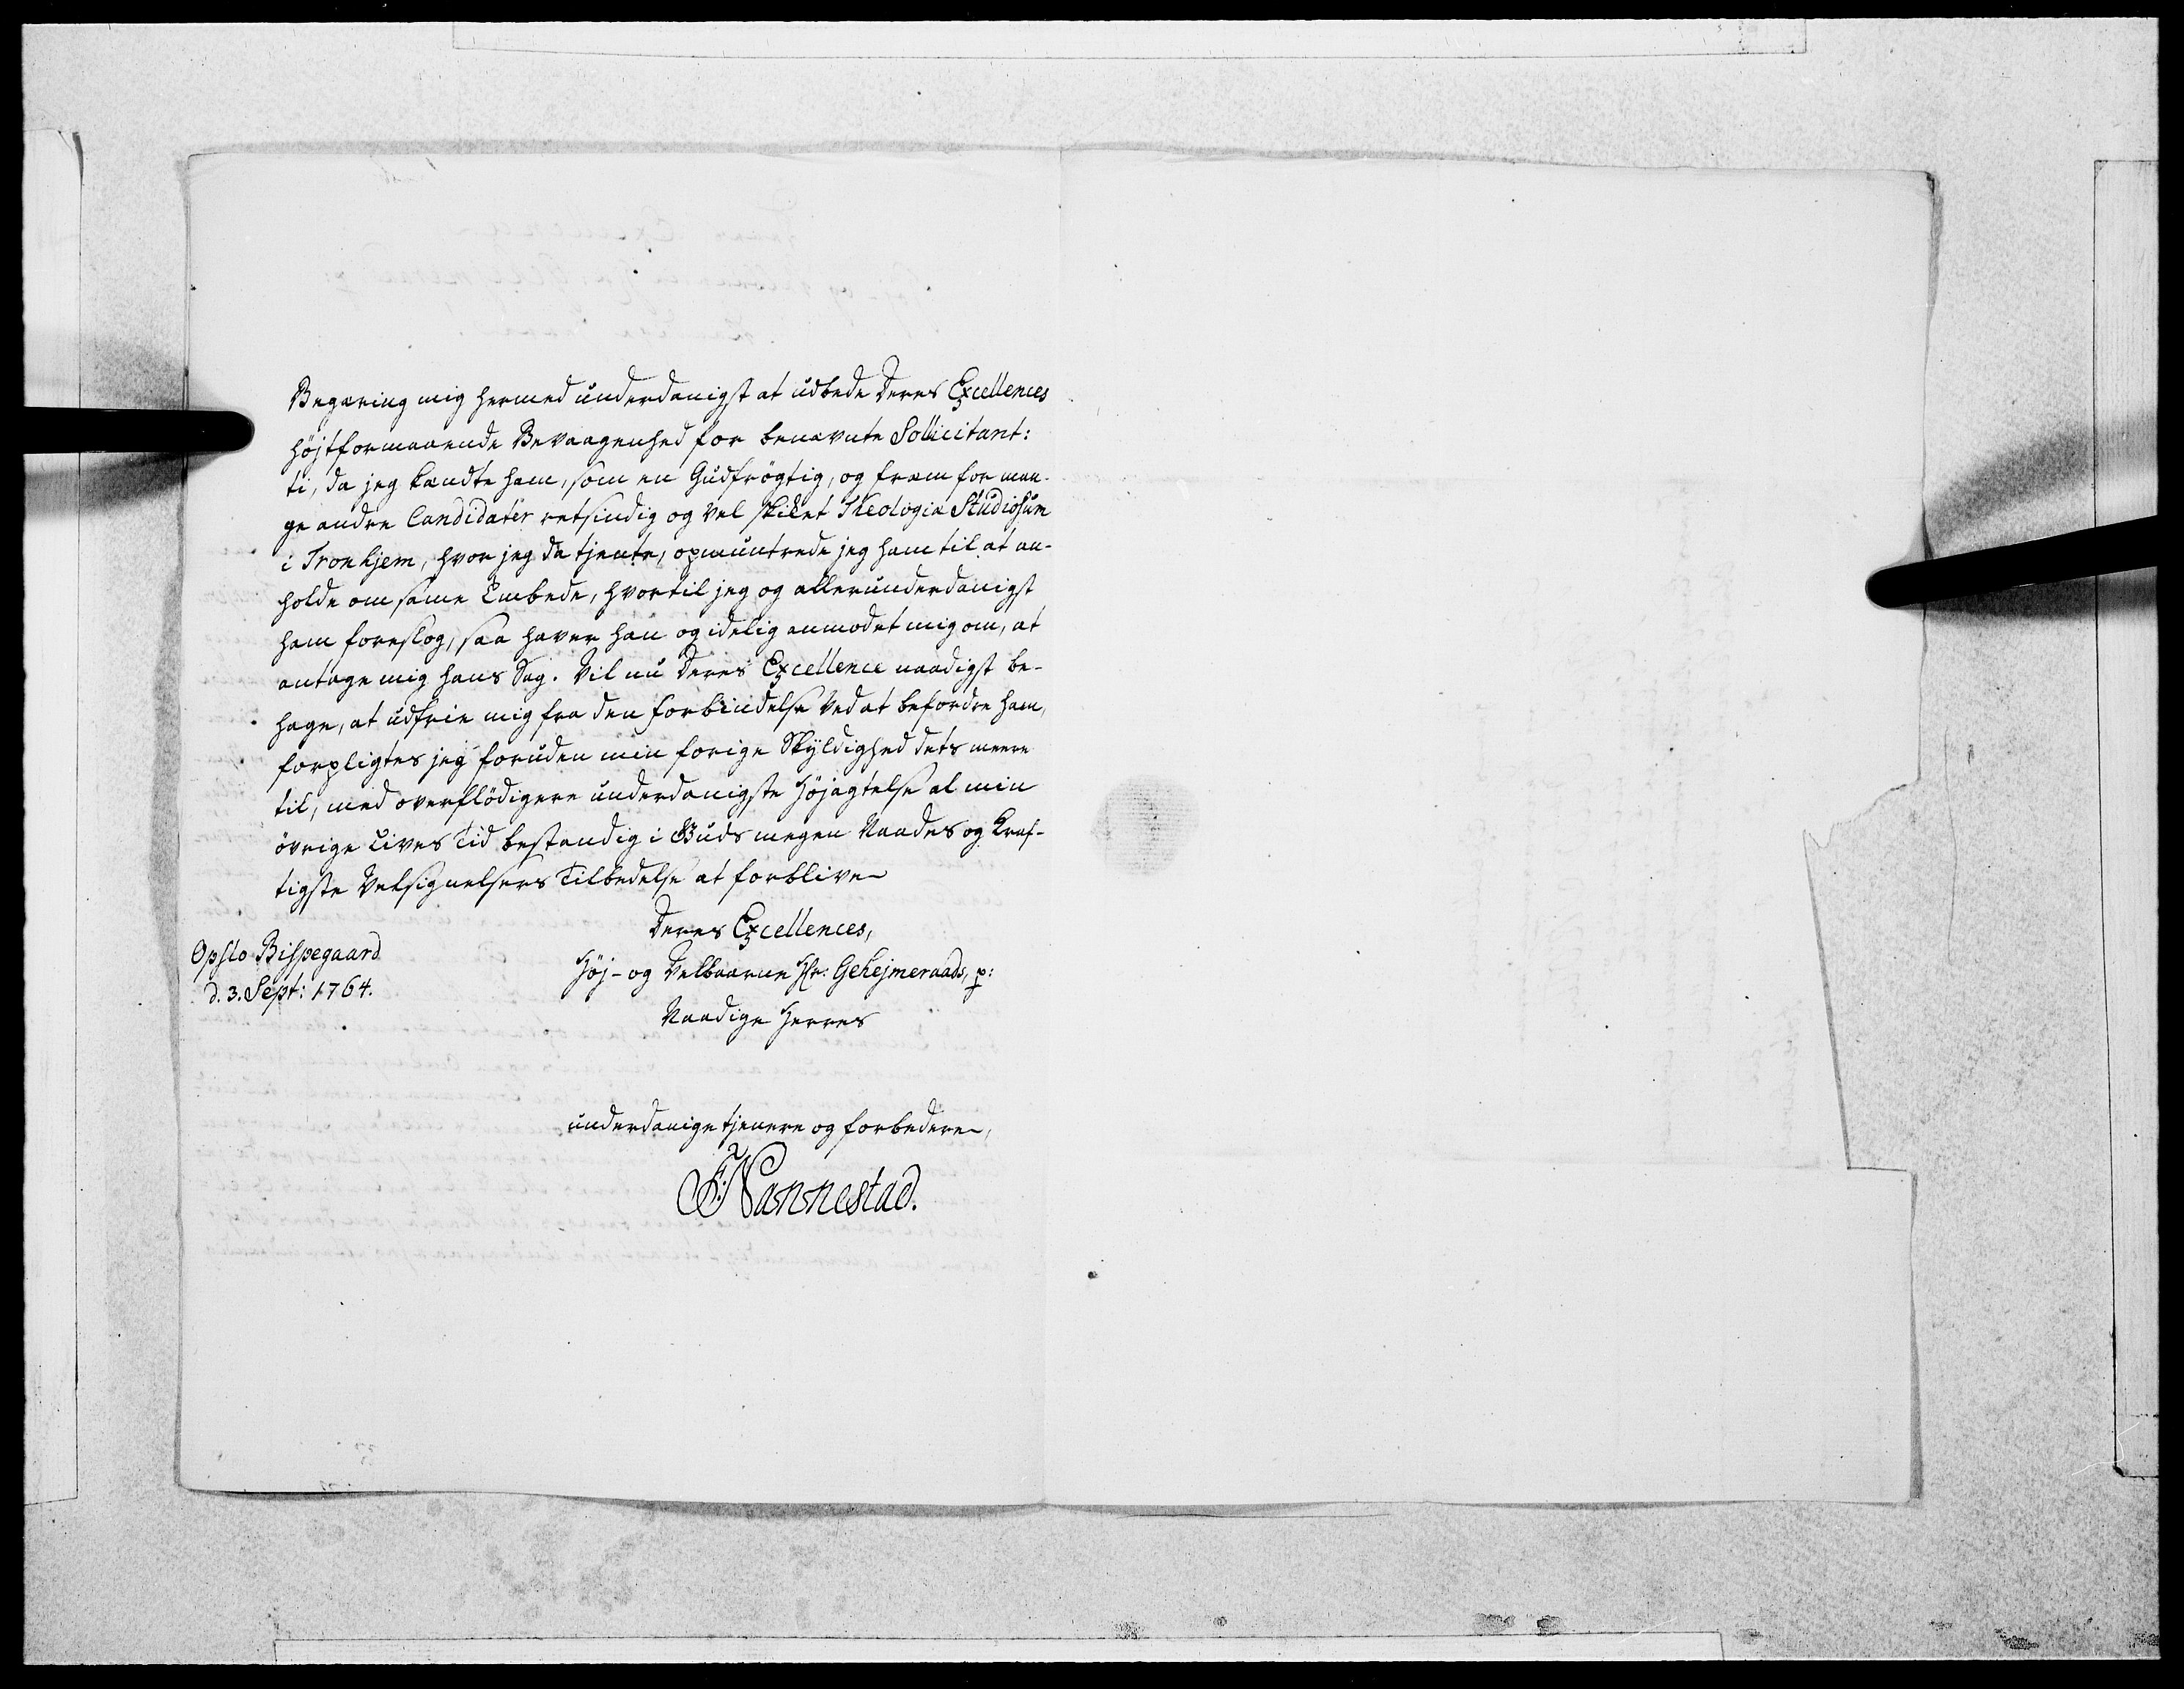 Begæring mig hermed underdanigst at udbede Deres Excellences
höjtformaaende Bevaagenhed for benævnte Sollicitant:
ti, da jeg kændte ham, som en Gudfrögtig, og fræm for man-
ge andre Candidater retsindig og vel skiket Theologiæ Studiosum
i Tronhjem, hvor jeg da tjente, opmuntrede jeg ham til at an-
holde om samme Embede, hvortil jeg og allerunderdanigst
ham foreslog, saa haver han og idelig anmodet mig om, at
antage mig hans Sag. Vil nu Deres Excellence naadigst be-
hage, at udfrie mig fra den forbindelse ved at befordre ham,
forpligtes jeg foruden min forige Skyldighed dets meere
til, med overflödigere underdanigste Höjagtelse al min
övrige Lives Tid bestandig i Guds megen Naades og kraf-
tigste Velsignelsers Tilbedelse at forblive
Deres Excellences,
Höj- og Velbaarne Hr: Gehejmeraads, p:
Naadige Herres
Opslo Bispegaard
d. 3. Sept: 1764.
underdanige tjenere og forbedere,
F: Nannestad.